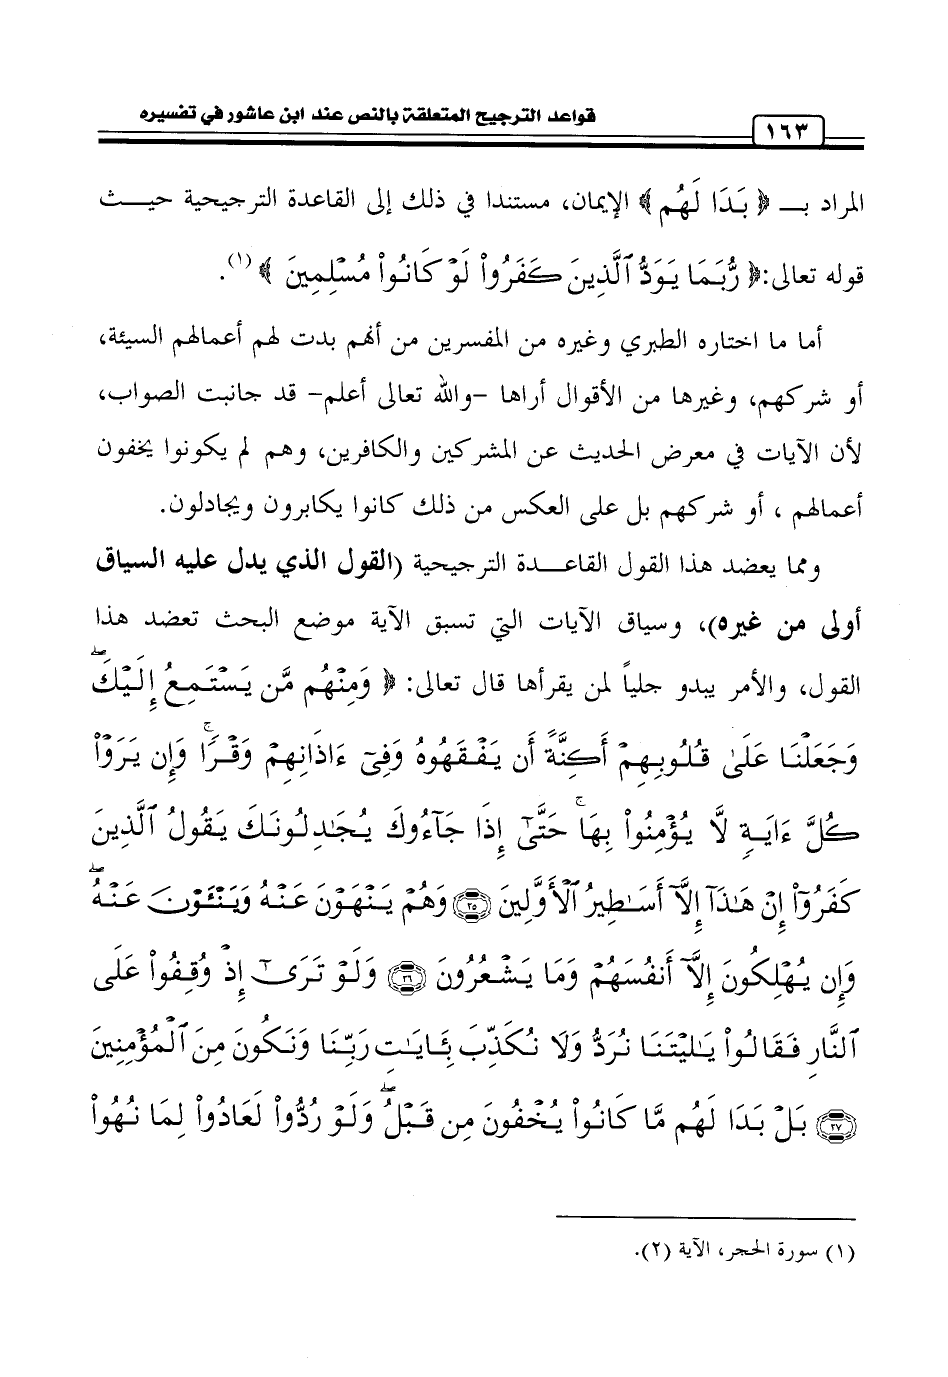 قواعد الترجيح المتعلقة بالنص عند ابن عاشور في تفسيره
١٦٣
المراد بـ ﴿ بَدَا لَهُم ﴾ الإيمان، مستندا في ذلك إلى القاعدة الترجيحية حيث
قوله تعالى:﴿ رُّبَمَا يَوَدُّ ٱلَّذِينَ كَفَرُواْ لَوْ كَانُواْ مُسْلِمِينَ ﴾(١).
أما ما اختاره الطبري وغيره من المفسرين من أنهم بدت لهم أعمالهم السيئة،
أو شركهم، وغيرها من الأقوال أراها -والله تعالى أعلم- قد جانبت الصواب،
لأن الآيات في معرض الحديث عن المشركين والكافرين، وهم لم يكونوا يخفون
أعمالهم ، أو شركهم بل على العكس من ذلك كانوا يكابرون ويجادلون.
ومما يعضد هذا القول القاعدة الترجيحية (القول الذي يدل عليه السياق
أولى من غيره)، وسياق الآيات التي تسبق الآية موضع البحث تعضد هذا
القول، والأمر يبدو جلياً لمن يقرأها قال تعالى: ﴿ وَمِنْهُم مَّن يَسْتَمِعُ إِلَيْكَۖ
وَجَعَلْنَا عَلَىٰ قُلُوبِهِمْ أَكِنَّةً أَن يَفْقَهُوهُ وَفِىٓ ءَاذَانِهِمْ وَقْرًاۚ وَإِن يَرَوْاْ
كُلَّ ءَايَةٍ لَّا يُؤْمِنُواْ بِهَاۚ حَتَّىٰٓ إِذَا جَآءُوكَ يُجَٰدِلُونَكَ يَقُولُ ٱلَّذِينَ
كَفَرُوٓاْ إِنْ هَٰذَآ إِلَّآ أَسَٰطِيرُ ٱلْأَوَّلِينَ ۝٢٥ وَهُمْ يَنْهَوْنَ عَنْهُ وَيَنْـَٔوْنَ عَنْهُۖ
وَإِن يُهْلِكُونَ إِلَّآ أَنفُسَهُمْ وَمَا يَشْعُرُونَ ۝٢٦ وَلَوْ تَرَىٰٓ إِذْ وُقِفُواْ عَلَى
ٱلنَّارِ فَقَالُواْ يَٰلَيْتَنَا نُرَدُّ وَلَا نُكَذِّبَ بِـَٔايَٰتِ رَبِّنَا وَنَكُونَ مِنَ ٱلْمُؤْمِنِينَ
۝٢٧ بَلْ بَدَا لَهُم مَّا كَانُواْ يُخْفُونَ مِن قَبْلُۖ وَلَوْ رُدُّواْ لَعَادُواْ لِمَا نُهُواْ
(١) سورة الحجر، الآية (٢).